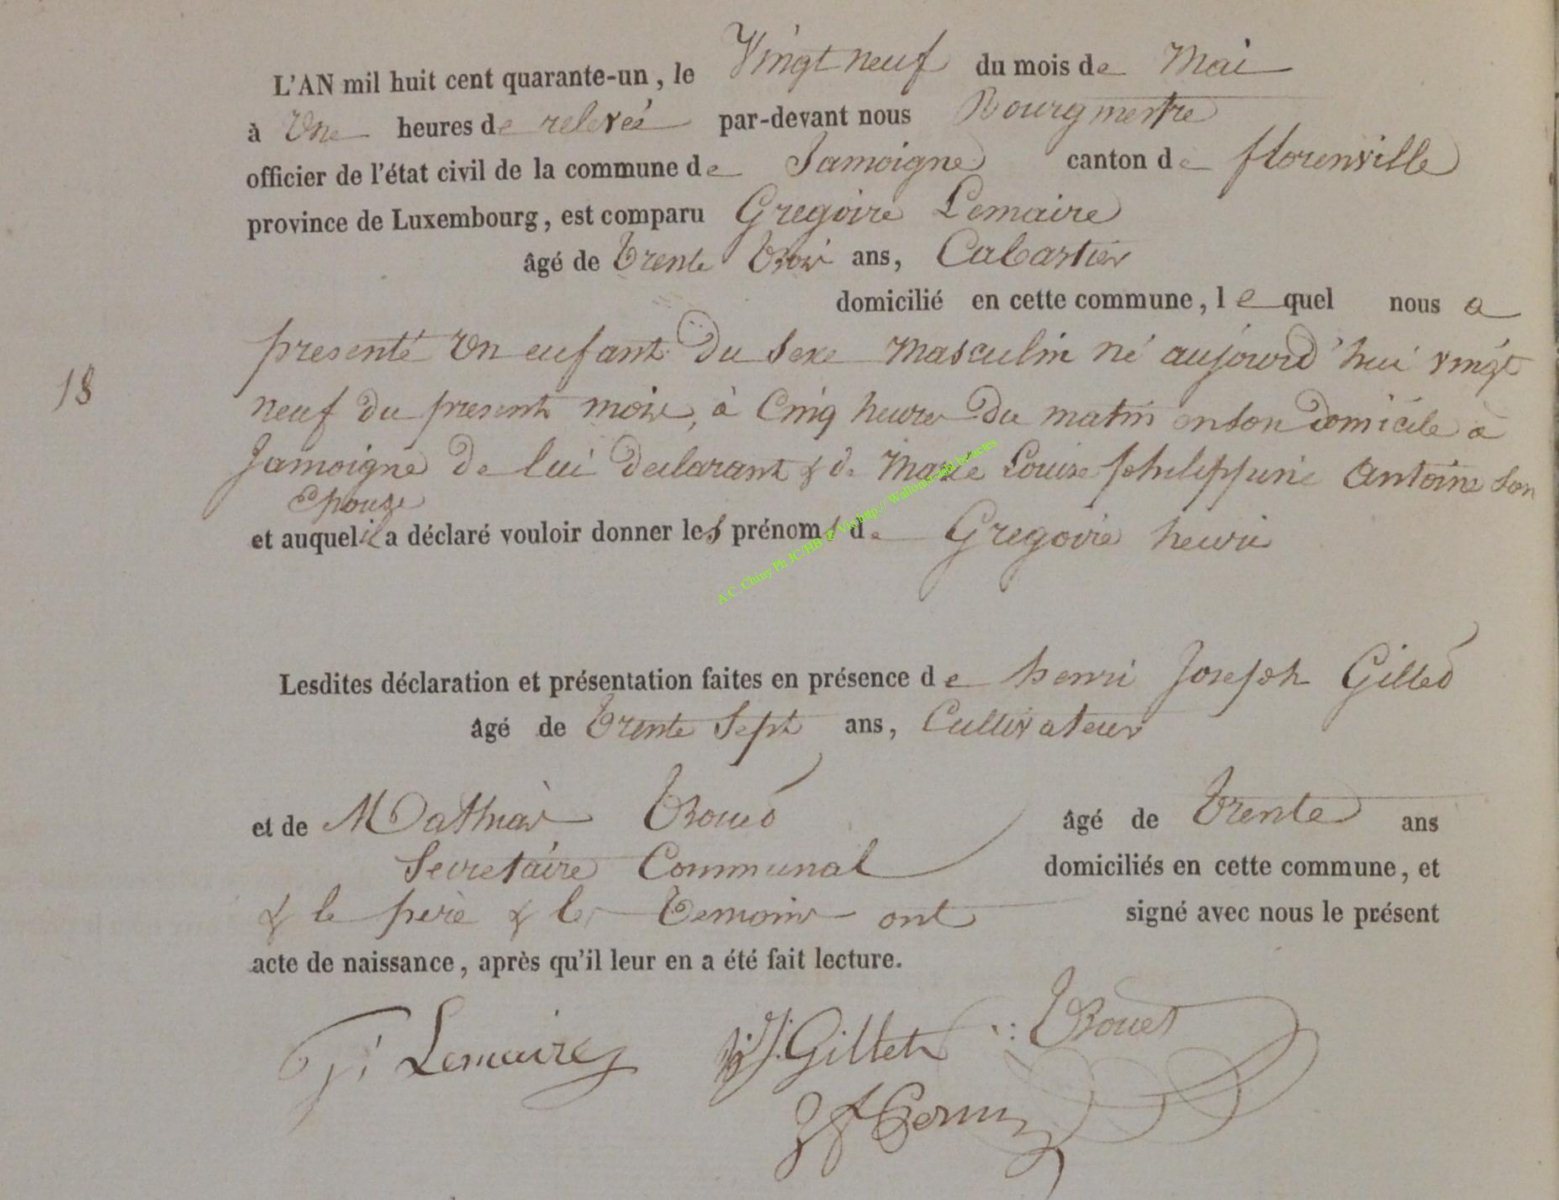 L'AN mil huit cent quarante-un, le Vingt neuf du mois de Mai
à Une heures de relevée par-devant nous Bourgmestre
officier de l'état civil de la commune de Jamoigne canton de florenville
province de Luxembourg, est comparu Gregoire Lemaire
âgé de trente trois ans, Cabartier
domicilié en cette commune, le quel nous a
presenté un enfant du sexe masculin né aujourd'hui vingt
18
neuf du present mois, à Cinq heures du matin en son domicile a
Jamoigne de lui declarant & de Marie Louise philippine Antoine son
Epouse
et auquel il a déclaré vouloir donner les prénoms de Gregoire henri
Lesdites déclaration et présentation faites en présence de henri Joseph Gillet
âgé de trente Sept ans, Cultivateur
et de Mathias âgé de trente ans
Secretaire Communal domiciliés en cette commune, et
& le père & les temoins ont signé avec nous le présent
acte de naissance, après qu'il leur en a été fait lecture.
Lemaire Gillet